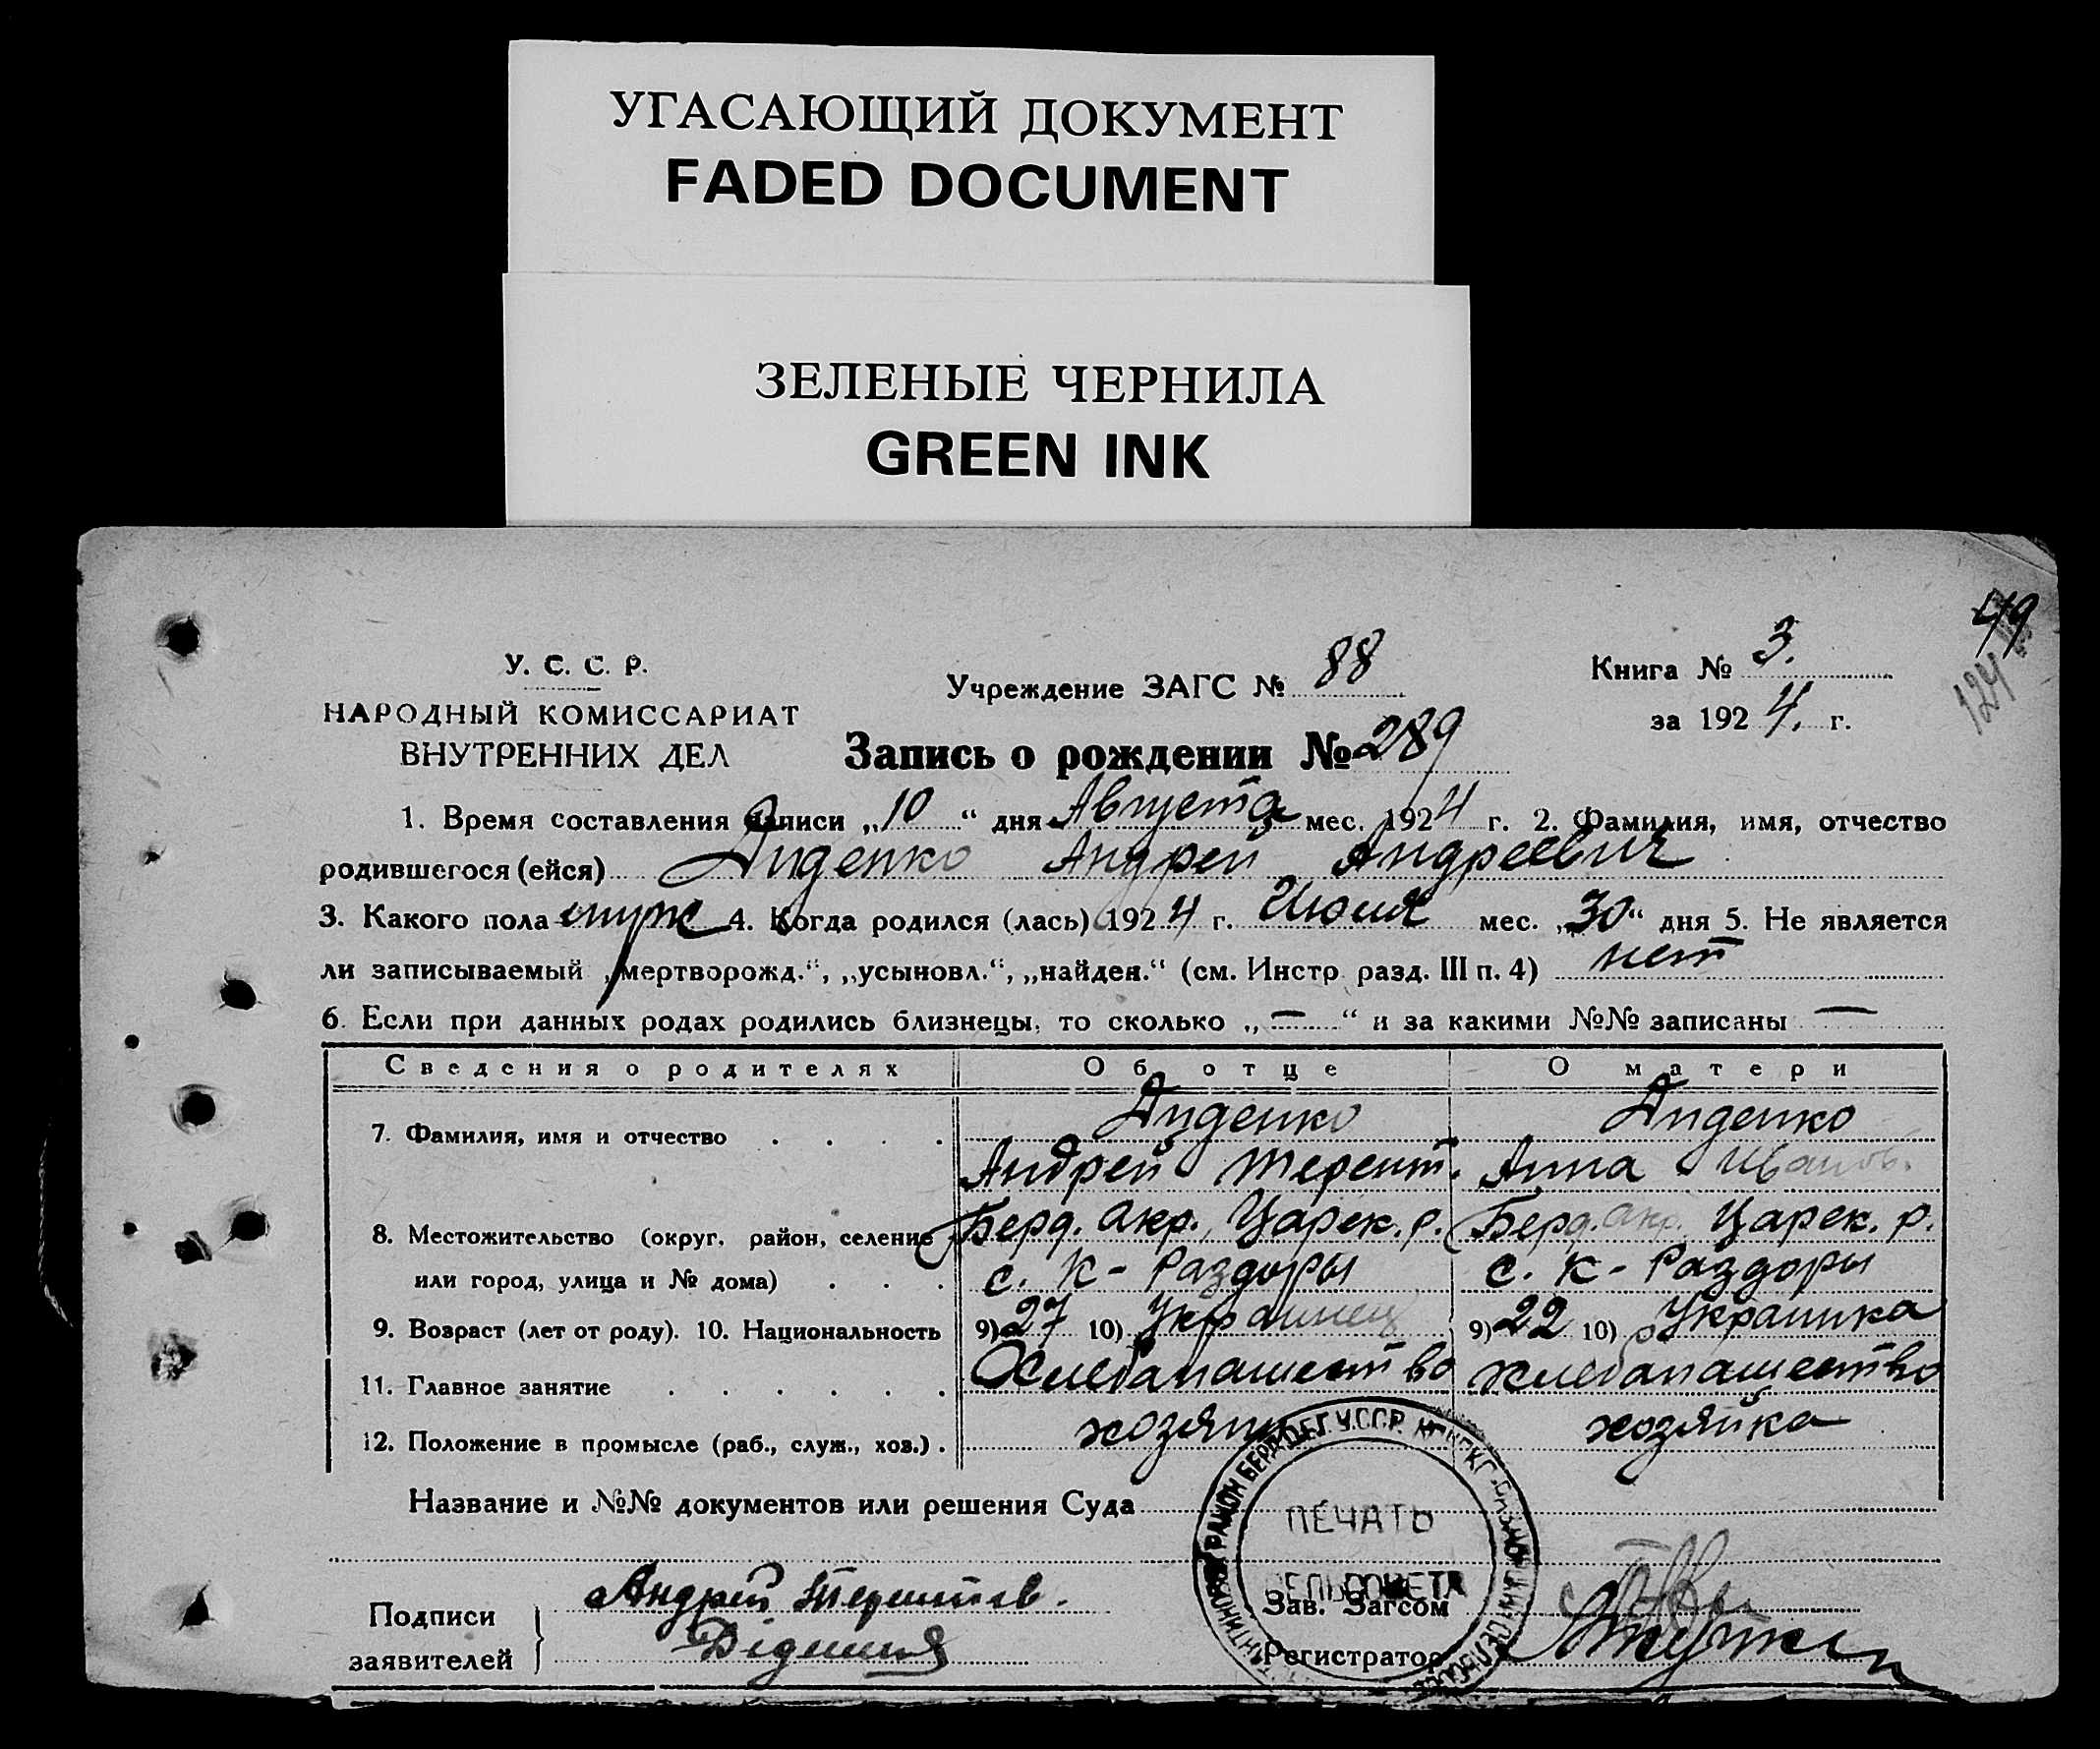 УГАСАЮЩИЙ ДОКУМЕНТ
FADED DOCUMENT
ЗЕЛЕНЫЕ ЧЕРНИЛА
GREEN INK
49
124
У. С. С. Р.
НАРОДНЫЙ КОМИССАРИАТ
ВНУТРЕННИХ ДЕЛ
Учреждение ЗАГС № 88
Книга № 3.
за 1924. г.
Запись о рождении № 289
1. Время составления записи „10“ дня Августа мес. 1924 г. 2. Фамилия, имя, отчество
родившегося (ейся) Диденко Андрей Андреевич
3. Какого пола муж 4. Когда родился (лась) 1924 г. Июля мес. „30“ дня 5. Не является
ли записываемый „мертворожд.“, „усыновл.“, „найден.“ (см. Инстр. разд. III п. 4) нет
6. Если при данных родах родились близнецы, то сколько „—“ и за какими №№ записаны —
Сведения о родителях Об отце О матери
7. Фамилия, имя и отчество Диденко Диденко
Андрей Терент. Анна Иванов.
8. Местожительство (округ, район, селение Берд. Окр. Царек. р. Берд. Окр. Царек. р.
или город, улица и № дома) с. К-Раздоры с. К-Раздоры
9. Возраст (лет от роду). 10. Национальность 9) 27 10) Украинец 9) 22 10) Украинка
11. Главное занятие Хлебапашество хлебапашество
12. Положение в промысле (раб., служ., хоз.) хозяин хозяйка
Название и №№ документов или решения Суда
ПЕЧАТЬ
СЕЛЬСОВЕТА
РАЙОН БЕРД У.С.С.Р.
Подписи
заявителей
Андрей Терентиев.
Зав. Загсом
Регистратор